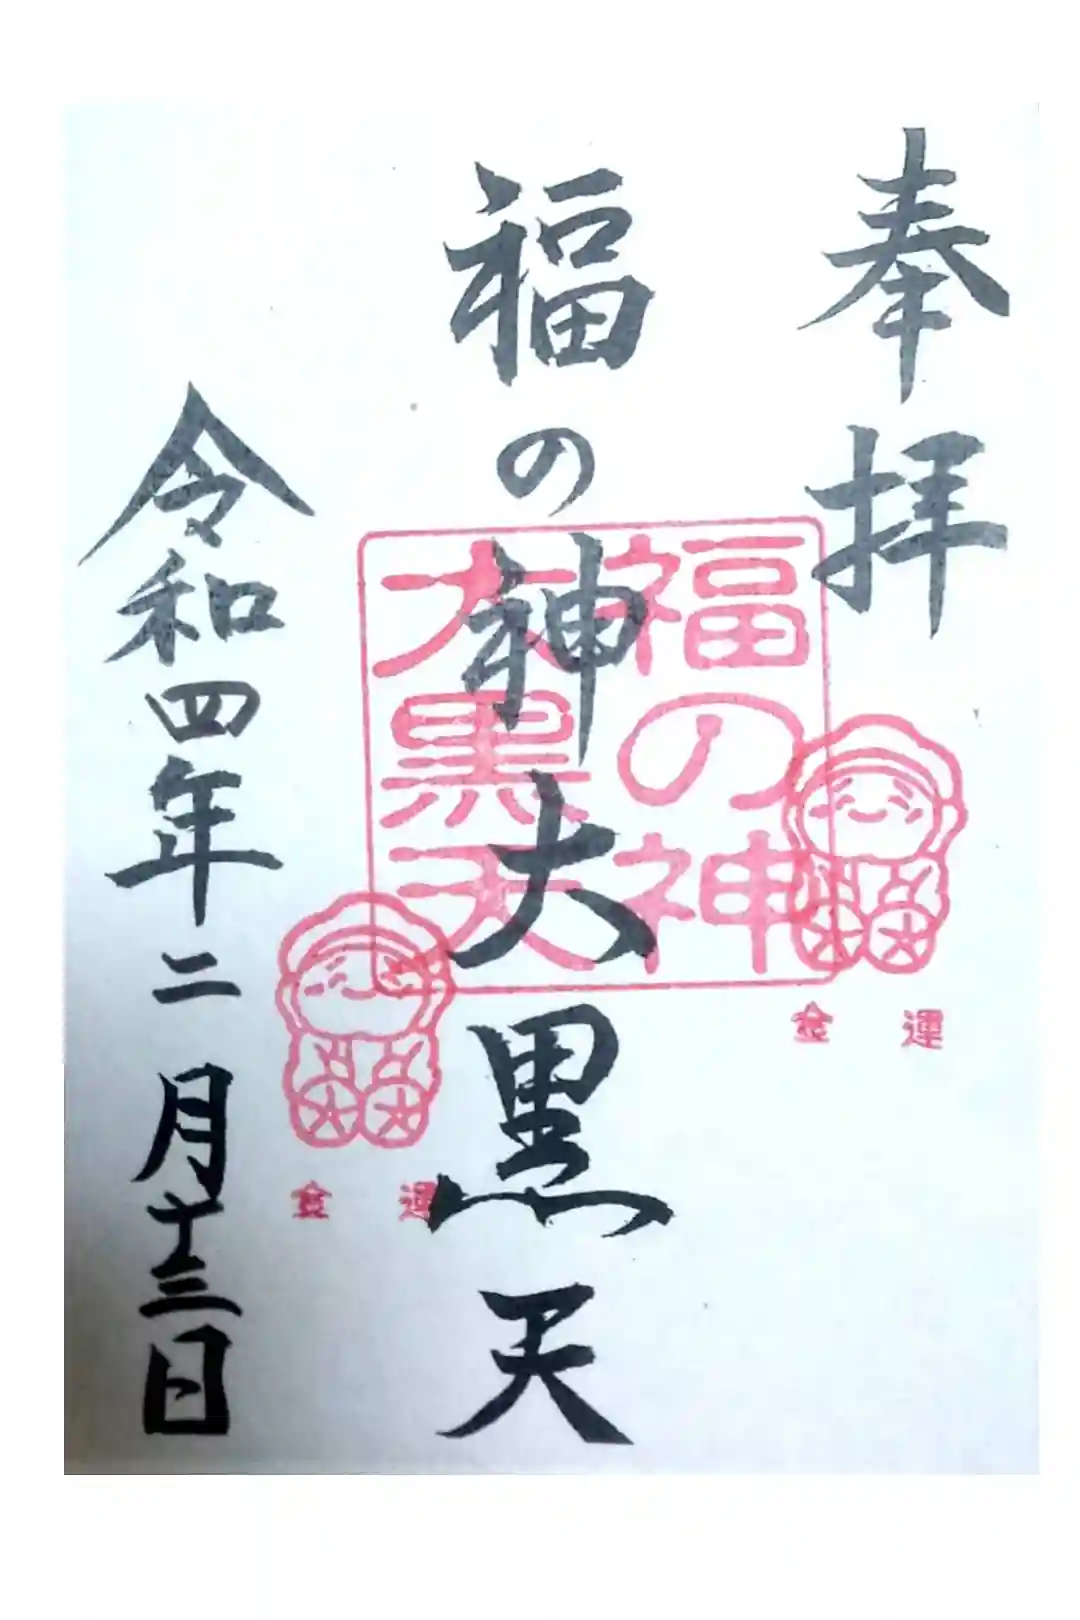 奉拝
福の神大黒天
福の神
大黒天
金運
金運
令和四年二月十三日